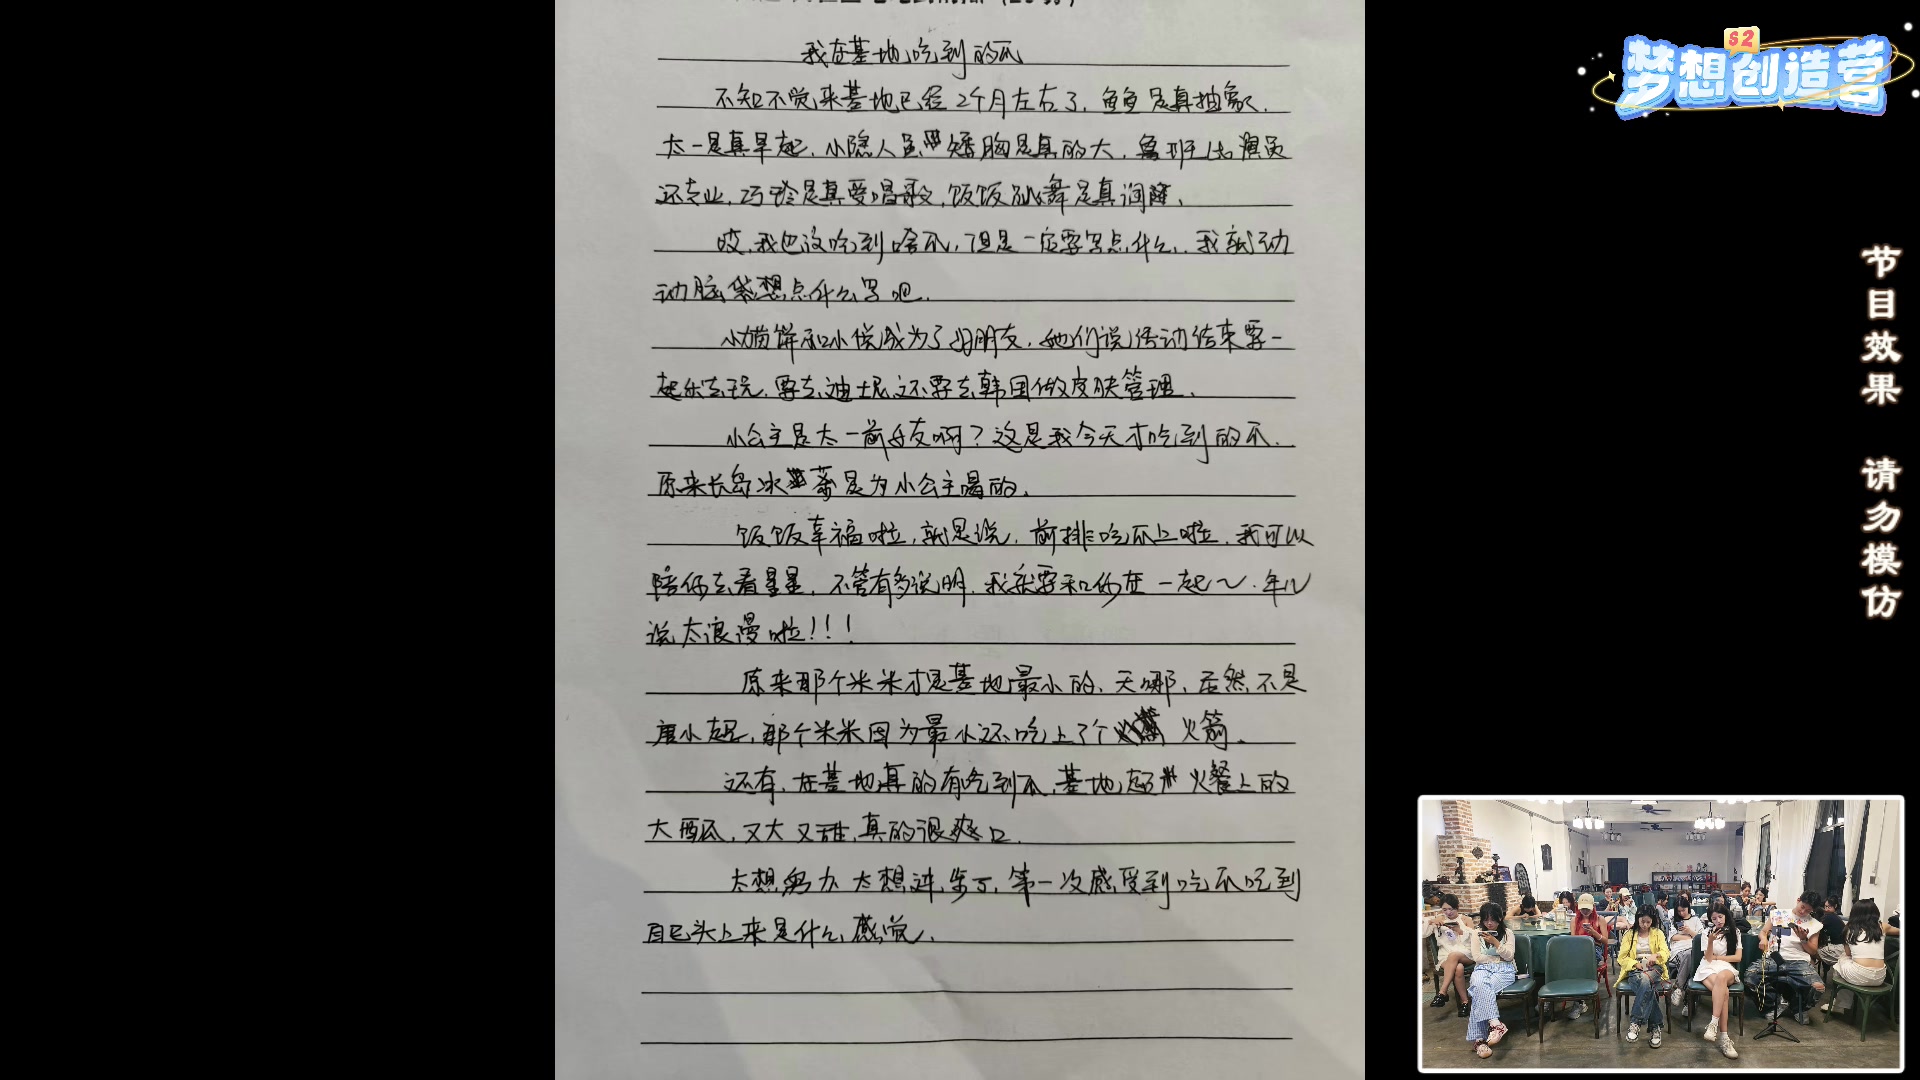 我在基地吃到的瓜
不知不觉来基地已经2个月左右了，鱼鱼是真抽象，
太一是真早起，小隐人虽矮胸是真的大，鲁班比演员
还专业，巧玲是真爱唱歌，饭饭跳舞是真润
哎，我也没吃到啥瓜，但是一定要写点什么，我就动
动脑袋想点什么写吧，
小猫饼和小侯成为了好朋友，她们说活动结束要一
起乐去玩，要去迪士尼还要去韩国做皮肤管理，
小公主是太一前女友啊？这是我今天才吃到的瓜，
原来长岛冰茶是为小公主喝的，
饭饭幸福啦，就是说，前排吃瓜上啦，我可以
陪你去看星星，不管有多说明，我就要和你在一起～，年
说太浪漫啦！！！
原来那个米米才是基地最小的，天哪，居然不是
唐小起，那个米米因为最小还吃上了个火箭，
还有，在基地真的有吃到瓜，基地超火餐上的
大西瓜，又大又甜，真的很爽口，
太想努力 太想进步了，第一次感受到吃瓜吃到
自己头上来是什么感觉，
S2
梦想创造营
节目效果 请勿模仿